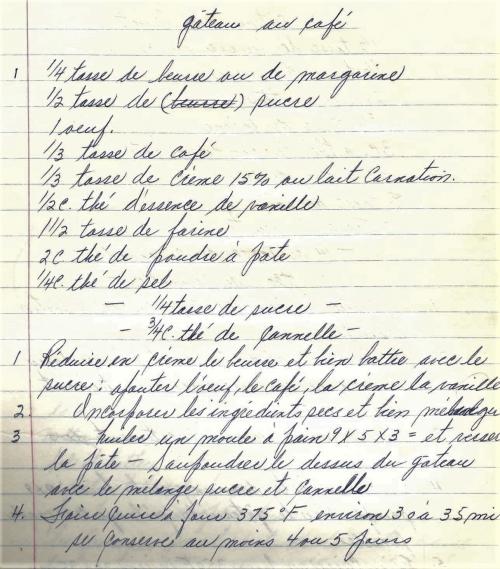 gâteau au café
1 1/4 tasse de beurre ou de margarine
1/2 tasse de (beurre) sucre
1 oeuf.
1/3 tasse de café
1/3 tasse de crème 15% ou lait Carnation.
1/2 c. thé d'essence de vanille
1 1/2 tasse de farine
2 c. thé de poudre à pâte
1/4 c. thé de sel
— 1/4 tasse de sucre —
— 3/4 c. thé de cannelle —
1 Réduire en crème le beurre et bien battre avec le
sucre: ajouter l'oeuf, le café, la crème la vanille
2. Incorporer les ingrédients secs et bien
3 huiler un moule à pain 9 X 5 X 3 = et
la pâte — Saupoudrer le dessus du gâteau
avec le mélange sucre et cannelle
4. Faire cuire à four 375°F environ 30 à 35 mi
se conserve au moins 4 ou 5 jours